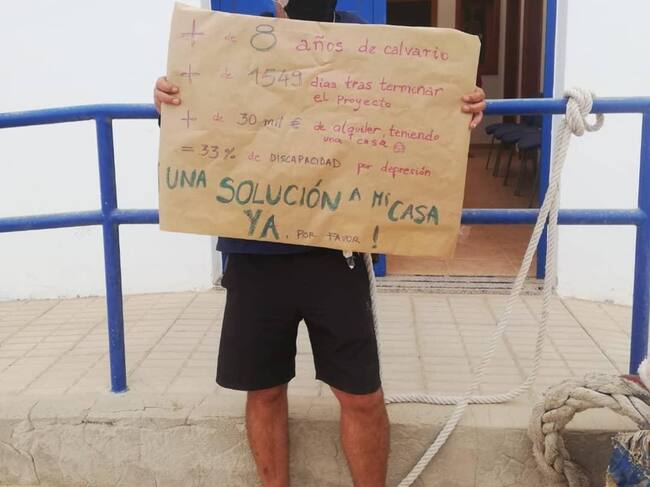 + de 8 años de calvario
+ de 1549 días tras terminar
el proyecto
+ de 30 mil € de alquiler, teniendo
una casa
= 33% de DISCAPACIDAD por depresión
UNA SOLUCIÓN A MI CASA
YA, POR FAVOR!